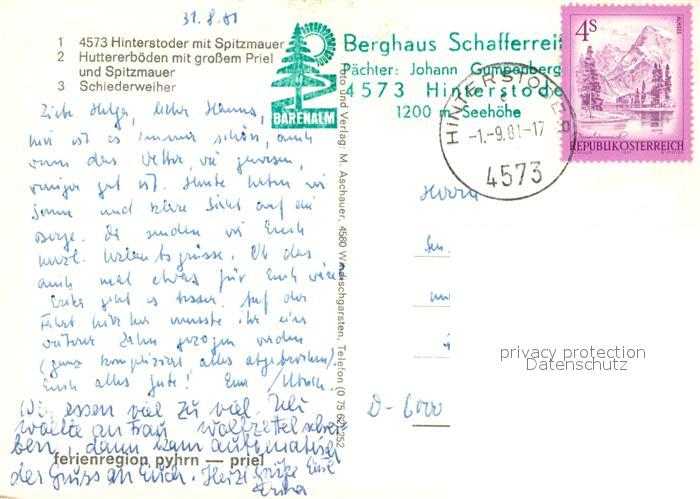 31.8.81
1 4573 Hinterstoder mit Spitzmauer
2 Huttererböden mit großem Priel
und Spitzmauer
3 Schiederweiher
Liebe Helga, lieber Hanns,
hier ist es immer schön, auch
wenn das Wetter, wie gewesen,
weniger gut ist. Heute hatten wir
Sonne und klare Sicht auf die
Berge. Da senden wir Euch
herzl. Urlaubsgrüsse. Ob das
auch mal etwas für Euch wäre
Erika geht es besser. Auf der
Fahrt hierher musste ihr ein
weiterer Zahn gezogen werden
(ganz kompliziert, alles abgebrochen).
Euch alles gute! Euer
Wir essen viel zu viel.
wollte an Frau schrei-
ben, dann kam automatisch
der Gruss an Euch. Herzl. Grüße Eure
Erika
ferienregion pyhrn — priel
Foto und Verlag: M. Aschauer, 4580 Windischgarsten, Telefon (0 75 62) 252
BÄRENALM
Berghaus Schafferreit
Pächter: Johann Gumpenberg
4573 Hinterstode
1200 m Seehöhe
HINTERSTODER
-1.-9.81-17
4573
4S
ALMSEE
REPUBLIK ÖSTERREICH
Herrn
D-6000
privacy protection
Datenschutz